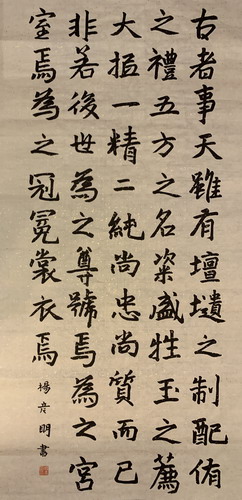 古者事天雖有壇壝之制配侑
之禮五方之名粢盛牲玉之薦
大抵一精二純尚忠尚質而已
非若後世為之尊號焉為之宮
室焉為之冠冕裳衣焉
楊彥明書